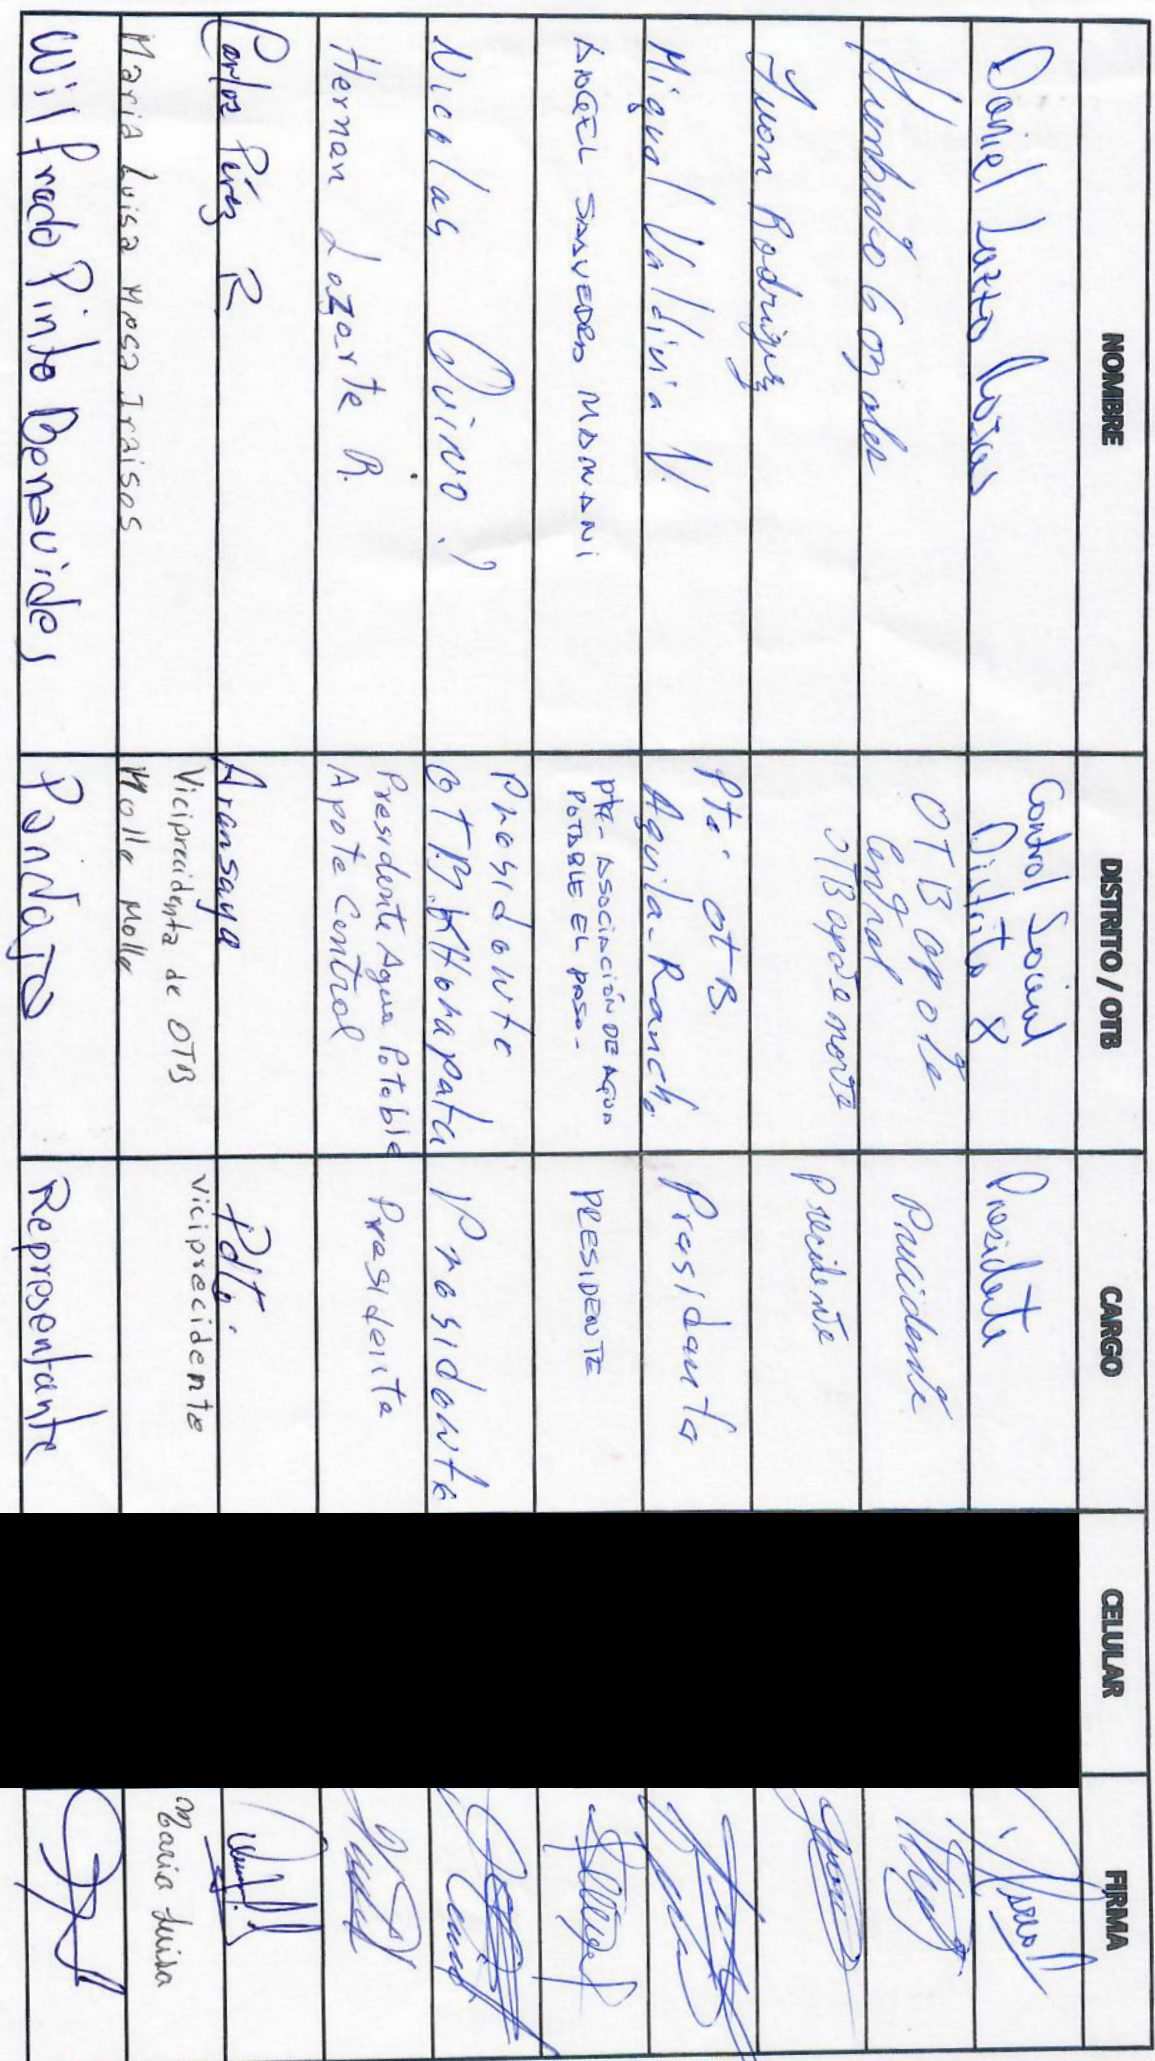 NOMBRE DISTRITO / OTB CARGO CELULAR FIRMA
Daniel Lazzo Rojas
Control Social
Distrito 8
Presidente
Humberto Gonzales
OTB apote
Central
Precidente
Juan Rodriguez
OTB apote norte
Precidente
Miguel Valdivia V.
Pte. OTB.
Aquila-Rancho
Presidente
ANGEL SAAVEDRA MAMANI
Pte- ASOCIACIÓN DE AGUA
POTABLE EL PASO-
PRESIDENTE
Nicolas Quino
Presidente
OTB. KHorapata
Presidente
Hernan Lazarte R.
Presidente Agua Potable
Apote Central
Presidente
Carlos Pérez R
Aransaya
Pdte.
Maria Luisa Mesa Iraisos
Vicipresidenta de OTB
Molle Molle
Viciprecidente
Maria Luisa
Wilfredo Pinto Benavides
Pandaja
Representante